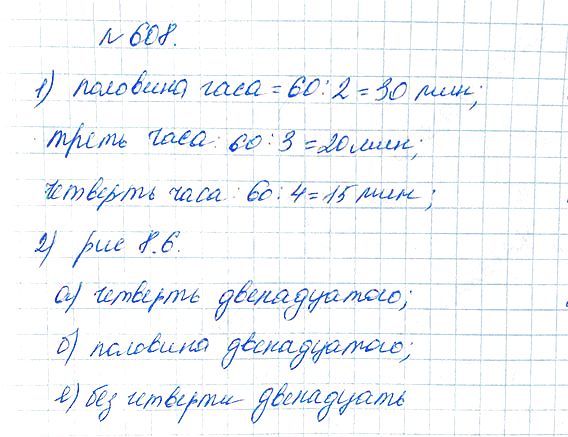 № 608.
1) половина часа = 60 : 2 = 30 мин;
треть часа: 60 : 3 = 20 мин;
четверть часа: 60 : 4 = 15 мин;
2) рис 8.6.
а) четверть двенадцатого;
б) половина двенадцатого;
в) без четверти двенадцать